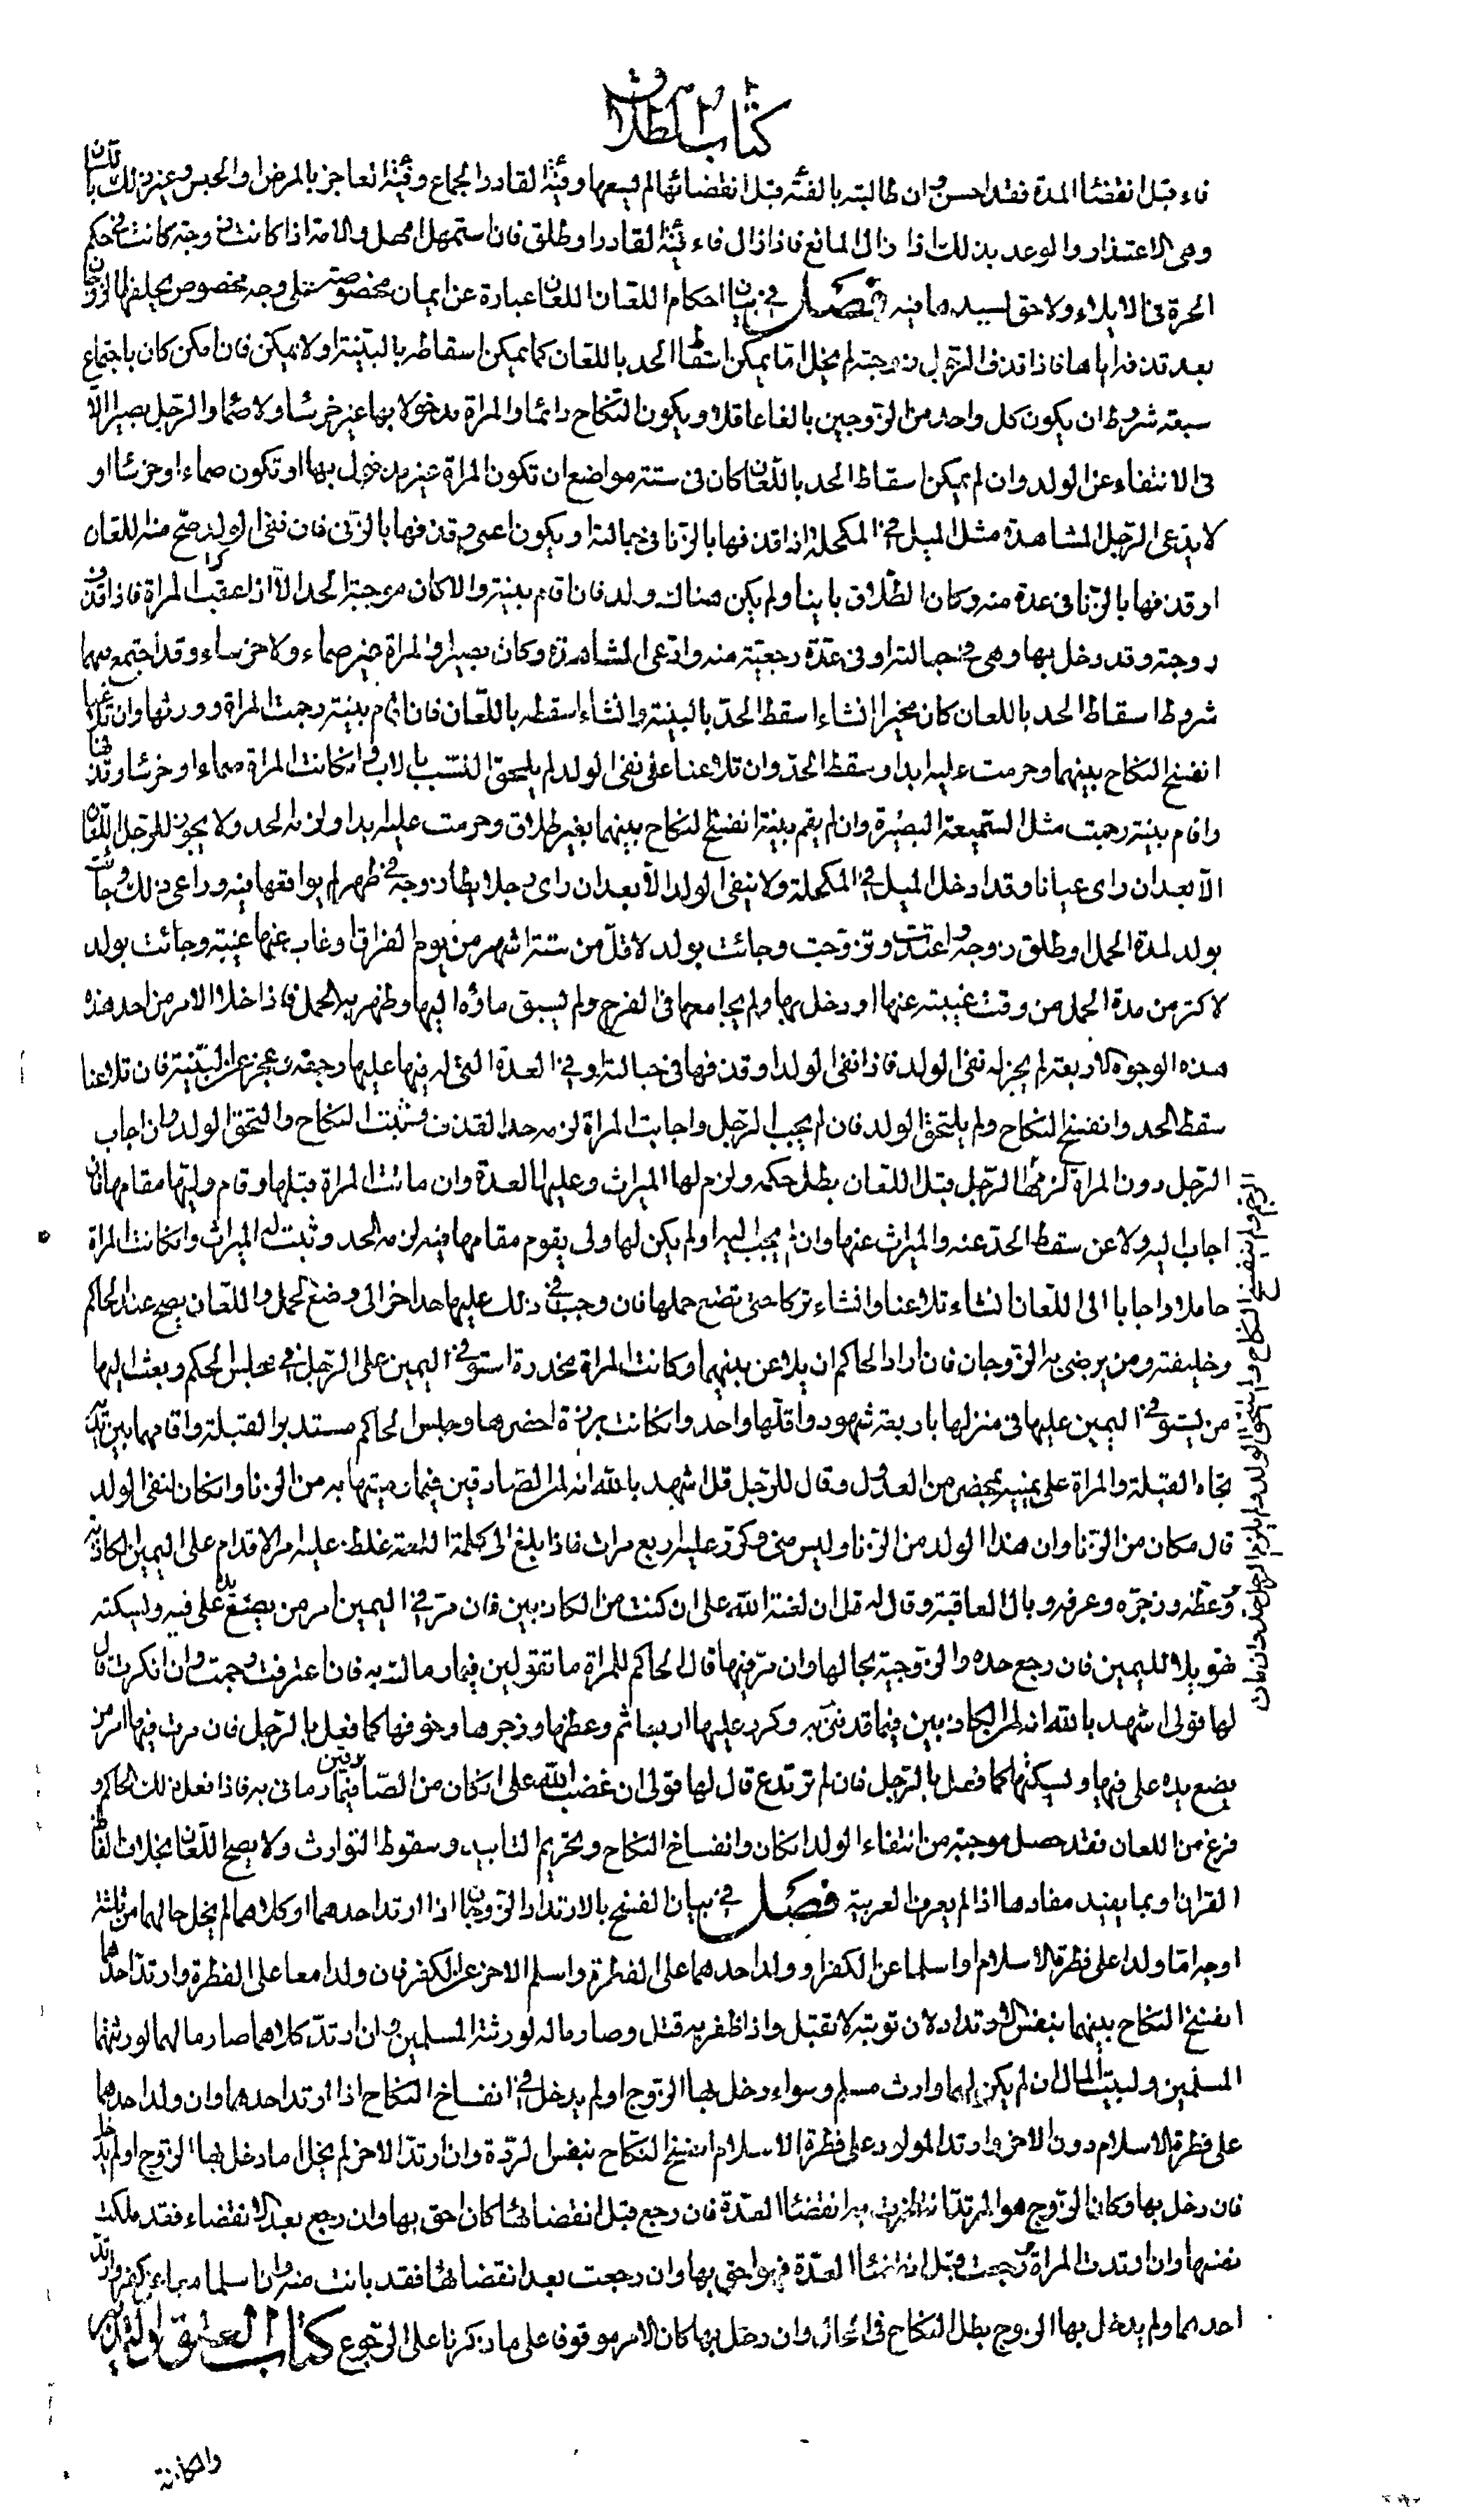 كتاب الطلاق
فاء قبل انقضاء المدة فقد احسن وان طالبته بالفئة قبل انقضائها لم يسعها وفئة القادر الجماع وفئة العاجز بالمرض او الحبس وغير ذلك باللسان
وهى الاعتذار والوعد بذلك اذا زال المانع فاذا زال فاء فئة القادر او طلق فان استمهل امهل والامة اذا كانت زوجة كانت فى حكم
الحرة فى الايلاء ولا حق لسيدها فيه فصل فى بيان احكام اللعان اللعان عبارة عن ايمان مخصوصة على وجه مخصوص يحلفها الزوجان
بعد قذفه اياها فاذا قذف الرجل زوجته لم يخل اما يمكن اسقاط الحد باللعان كما يمكن اسقاطه بالبينة او لا يمكن فان امكن كان باجتماع
سبعة شروط ان يكون كل واحد من الزوجين بالغا عاقلا ويكون النكاح دائما والمراة مدخولا بها غير خرساء ولا صماء والرجل بصيرا الا
فى الانتفاء عن الولد وان لم يمكن اسقاط الحد باللعان كان فى ستة مواضع ان تكون المراة غير مدخول بها او تكون صماء او خرساء او
لا يدعى الرجل المشاهدة مثل الميل فى المكحلة اذا قذفها بالزنا فى حبالته او يكون اعمى وقذفها بالزنى فان نفى الولد صح منه اللعان
او قذفها بالزنا فى عدة منه وكان الطلاق باينا ولم يكن هناك ولد فان اقام بينة والا كان موجبة الحد الا اذا عقب المراة فاذا قذف
زوجته وقد دخل بها وهى فى حبالته او فى عدة رجعية منه وادعى المشاهدة وكان بصيرا والمراة غير صماء ولا خرساء وقد اجتمع فيهما
شروط اسقاط الحد باللعان كان مخيرا ان شاء اسقط الحد بالبينة وان شاء اسقطه باللعان فان اقام بينة رجمت المراة وورثها وان تلاعنا
انفسخ النكاح بينهما وحرمت عليه ابدا وسقط الحد وان تلاعنا على نفى الولد لم يلحق النسب بالاب وان كانت المراة صماء او خرساء وقذفها
واقام بينة رجمت مثل السميعة البصيرة وان لم يقم بينة انفسخ النكاح بينهما بغير طلاق وحرمت عليه ابدا ولزمه الحد ولا يجوز للرجل اللعان
الا بعد ان راى عيانا وقد ادخل الميل فى المكحلة ولا ينفى الولد الا بعد ان راى رجلا يطا زوجه فى طهر لم يواقعها فيه وراعى ذلك وجائت
بولد لمدة الحمل او طلق زوجه واعتدت وتزوجت وجائت بولد لاقل من ستة اشهر من يوم الفراق او غاب عنها غيبة وجائت بولد
لاكثر من مدة الحمل من وقت غيبته عنها او دخل بها ولم يجامعها فى الفرج ولم يسبق ماؤه اليها وظهر بها الحمل فاذا خلا الامر من احد هذه
هذه الوجوه الاربعة لم يجز له نفى الولد فاذا نفى الولد او قذفها فى حبالته او فى العدة التى له فيها عليها رجعة وعجز عن البينة فان تلاعنا
سقط الحد وانفسخ النكاح ولم يلتحق الولد فان لم يجب الرجل واجابت المراة لزمه حد القذف وثبت النكاح والتحق الولد وان اجاب
الرجل دون المراة لزمها الرجم قبل اللعان بطل حكمه ولزم لها الميراث وعليها العدة وان ماتت المراة قبلها وقام وليها مقامها فان
اجاب اليه ولاعن سقط الحد عنه والميراث عنها وان لم يجب اليه او لم يكن لها ولى يقوم مقامها فيه لزمه الحد وثبت له الميراث وان كانت المراة
حاملا واجابا الى اللعان ان شاء تلاعنا وان شاء تركا حتى تضع حملها فان وجب فى ذلك عليها حد اخر الى وضع الحمل واللعان يصح عند الحاكم
وخليفته ومن يرضى به الزوجان فان اراد الحاكم ان يلاعن بينهما وكانت المراة مخدرة استوفى اليمين على الرجل فى مجلس الحكم وبعث اليها
من يستوفى اليمين عليها فى منزلها باربعة شهود واقلها واحد وان كانت برزة احضرها وجلس الحاكم مستدبر القبلة واقامهما بين يديه
تجاه القبلة والمراة على يمينه بمحضر من العدول وقال للرجل قل اشهد بالله انه لمن الصادقين فيما رميتها به من الزنا وان كان لنفى الولد
قال مكان من الزنا وان هذا الولد من الزنا وليس منى وكرر عليه اربع مرات فاذا بلغ الى كلمة اللعنة غلظ عليه امر الاقدام على اليمين الكاذبة
ووعظه وزجره وعرفه وبال العاقبة وقال له قل ان لعنة الله على ان كنت من الكاذبين فان مر فى اليمين امر من يضع يده على فيه ويسكته
تهويلا لليمين فان رجع حده والزوجية بحالها وان مر فيها قال الحاكم للمراة ما تقولين فيما رماك به فان اعترفت رجمت وان انكرت قال
لها قولى اشهد بالله انه لمن الكاذبين فيما قذفنى به وكرر عليها اربعا ثم وعظها وزجرها وخوفها كما فعل بالرجل فان مرت فيها امر من
يضع يده على فيها ويسكتها كما فعل بالرجل فان لم ترتدع قال لها قولى ان غضب الله على ان كان من الصادقين فيما رمانى به فاذا فعل ذلك الحاكم و
فرغ من اللعان فقد حصل موجبه من انتفاء الولد ان كان وانفساخ النكاح وتحريم التابيد وسقوط التوارث ولا يصح اللعان بخلاف الفاظ
القران او بما يفيد مفادها اذا لم يعرف العربية فصل فى بيان الفسخ بالارتداد الزوجان اذا ارتد احدهما او كلاهما لم يخل حالهما من ثلثة
اوجه اما ولدا على فطرة الاسلام او اسلما عن الكفر او ولد احدهما على الفطرة واسلم الاخر عن الكفر فان ولدا معا على الفطرة وارتد احدهما
انفسخ النكاح بينهما بنفس الارتداد لان توبته لا تقبل واذا ظفر به قتل وصار ماله لورثته المسلمين وان ارتد كلاهما صار مالهما لورثتهما
المسلمين ولبيت المال ان لم يكن لهما وارث مسلم وسواء دخل بها الزوج او لم يدخل فى انفساخ النكاح اذا ارتد احدهما وان ولد احدهما
على فطرة الاسلام دون الاخر وارتد المولود على فطرة الاسلام انفسخ النكاح بنفس الردة وان ارتد الاخر لم يخل اما دخل بها الزوج او لم يدخل
فان دخل بها وكان الزوج هو المرتد انتظرت به انقضاء العدة فان رجع قبل انقضائها كان احق بها وان رجع بعد الانقضاء فقد ملكت
نفسها وان ارتدت المراة ورجعت قبل انقضاء العدة فهو احق بها وان رجعت بعد انقضائها فقد بانت منه وان اسلما معا عن كفر وارتد
احدهما ولم يدخل بها الزوج بطل النكاح فى الحال وان دخل بها كان الامر موقوفا على ما ذكرنا على الرجوع كتاب العتق والتدبير
والمكاتبة
الرجم ولم ينفسخ النكاح ولم يلتحق الولد ولم يلزم الرجل حد فان مات